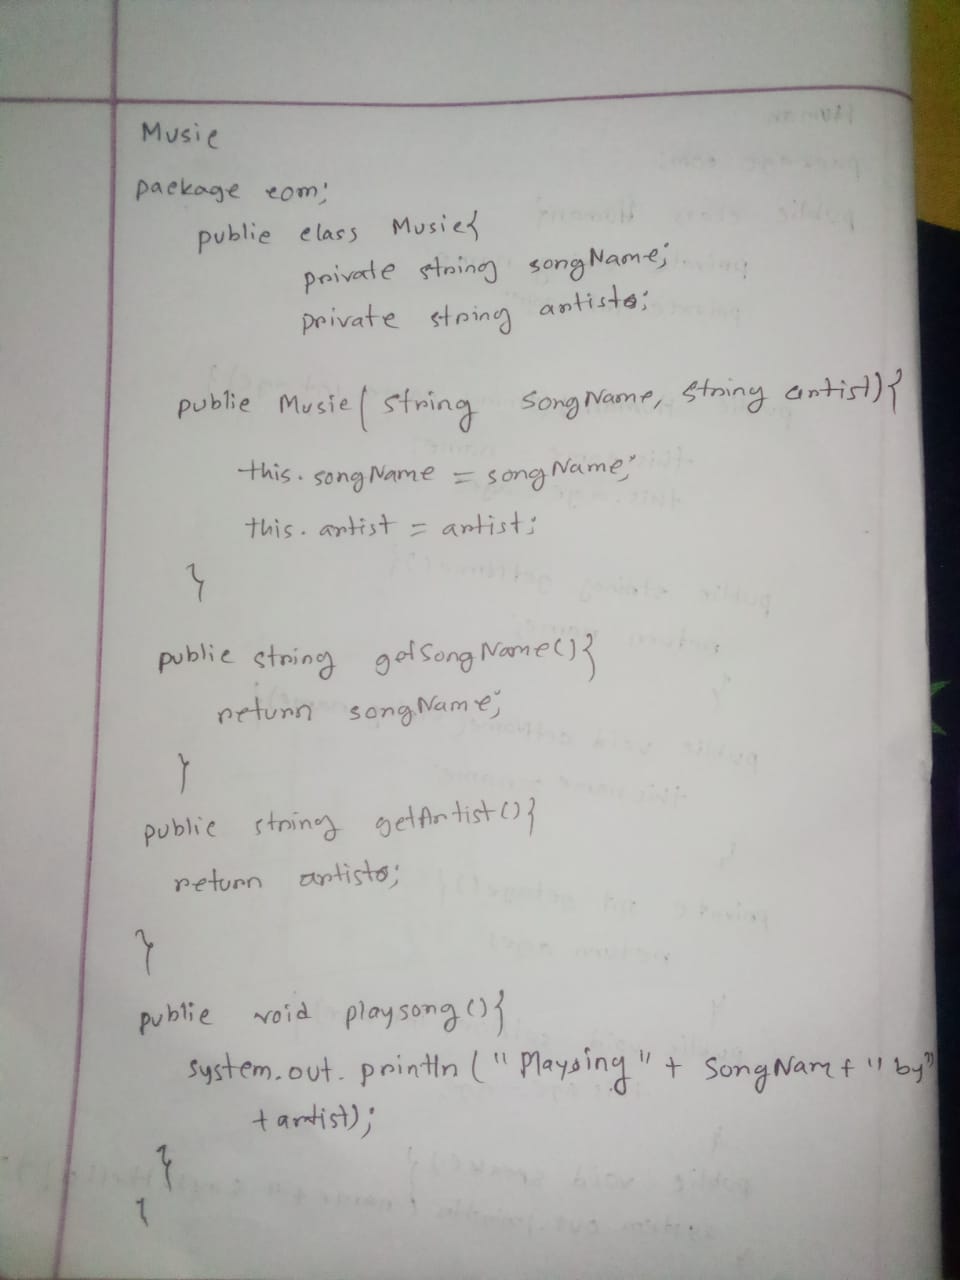 Music
package com;
public class Music{
private string songName;
private string artist;
public Music(string songName, string artist){
this.songName = songName;
this.artist = artist;
}
public string getSongName(){
return songName;
}
public string getArtist(){
return artist;
}
public void playsong(){
system.out.println("Playsing" + SongNam + "by"
+ artist);
}
}